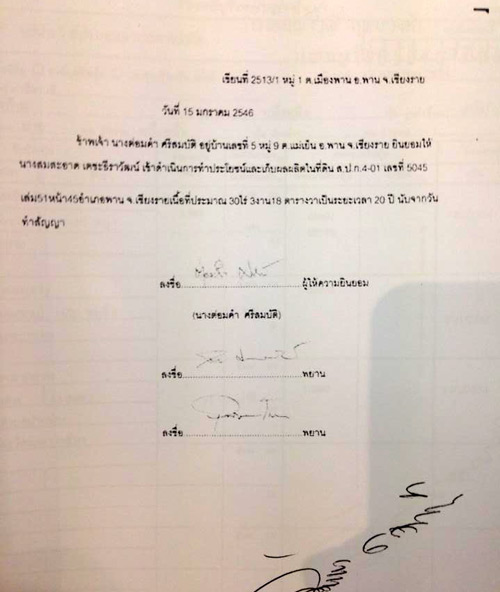 เขียนที่ 2513/1 หมู่ 1 ต.เมืองพาน อ.พาน จ.เชียงราย
วันที่ 15 มกราคม 2546
ข้าพเจ้า นางต่อมคำ ศรีสมบัติ อยู่บ้านเลขที่ 5 หมู่ 9 ต.แม่เย็น อ.พาน จ.เชียงราย ยินยอมให้
นางสมสะอาด เตชะธีราวัฒน์ เข้าดำเนินการทำประโยชน์และเก็บผลผลิตในที่ดิน ส.ป.ก.4-01 เลขที่ 5045
เล่ม51หน้า45อำเภอพาน จ.เชียงรายเนื้อที่ประมาณ 30ไร่ 3งาน18 ตารางวาเป็นระยะเวลา 20 ปี นับจากวัน
ทำสัญญา
ลงชื่อ..............................ผู้ให้ความยินยอม
(นางต่อมคำ ศรีสมบัติ)
ลงชื่อ..............................พยาน
ลงชื่อ..............................พยาน